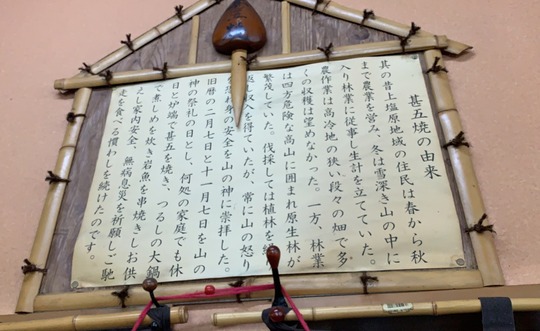 甚五焼の由来
其の昔上塩原地域の住民は春から秋
まで農業を営み、冬は雪深き山の中に
入り林業に従事し生計を立てていた。
農作業は高冷地の狭い段々の畑で多
くの収穫は望めなかった。一方、林業
は四方危険な高山に囲まれ原生林が
繁茂していた。伐採しては植林を
返し収入を得ていたが、常に山の怒り
恐れ身の安全を山の神に崇拝した。
旧暦の二月七日と十一月七日を山の
神の祭礼の日とし、何処の家庭でも休
日と炉端で甚五を焼き、つるしの大鍋
で煮しめを炊き岩魚を串焼きしお供
えし家内安全、無病息災を祈願しご馳
走を食べる慣わしを続けたのです。